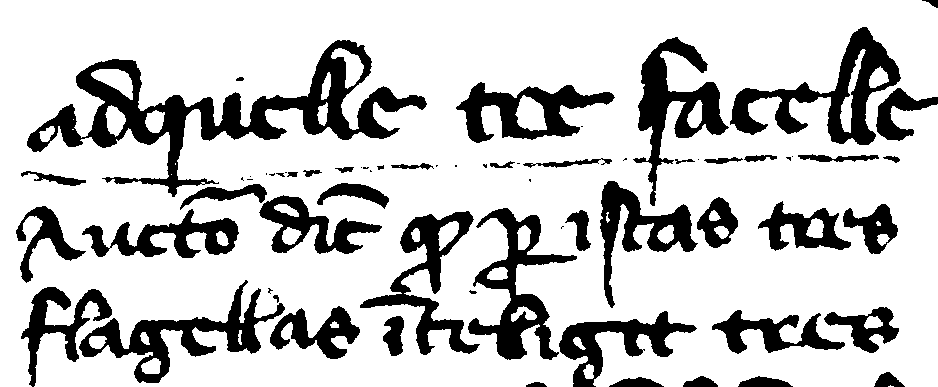 adquelle tre facelle
Aucto᷉ dic̄ ꝙ ꝑ istas tres
flagellas īteligit tres